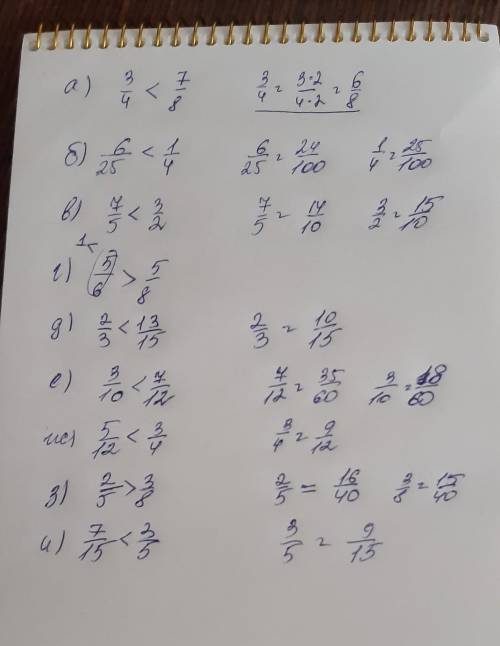 а) 3/4 < 7/8 3/4 = 3·2/4·2 = 6/8
б) 6/25 < 1/4 6/25 = 24/100 1/4 = 25/100
в) 7/5 < 3/2 7/5 = 14/10 3/2 = 15/10
г) 5/6 > 5/8
д) 2/3 < 13/15 2/3 = 10/15
е) 3/10 < 7/12 7/12 = 35/60 3/10 = 18/60
ж) 5/12 < 3/4 3/4 = 9/12
з) 2/5 > 3/8 2/5 = 16/40 3/8 = 15/40
и) 7/15 < 3/5 3/5 = 9/15